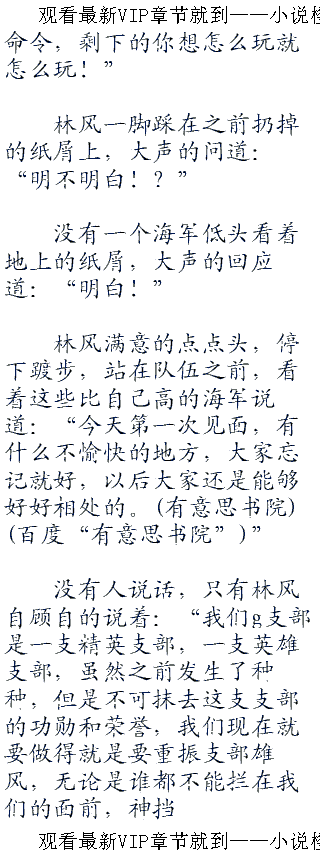 观看最新VIP章节就到——小说
命令，剩下的你想怎么玩就
怎么玩！”
林风一脚踩在之前扔掉
的纸屑上，大声的问道：
“明不明白！？”
没有一个海军低头看着
地上的纸屑，大声的回应
道：“明白！”
林风满意的点点头，停
下踱步，站在队伍之前，看
着这些比自己高的海军说
道：“今天第一次见面，有
什么不愉快的地方，大家忘
记就好，以后大家还是能够
好好相处的。(有意思书院)
(百度“有意思书院”)”
没有人说话，只有林风
自顾自的说着：“我们g支部
是一支精英支部，一支英雄
支部，虽然之前发生了种
种，但是不可抹去这支支部
的功勋和荣誉，我们现在就
要做得就是要重振支部雄
风，无论是谁都不能拦在我
们的面前，神挡
观看最新VIP章节就到——小说